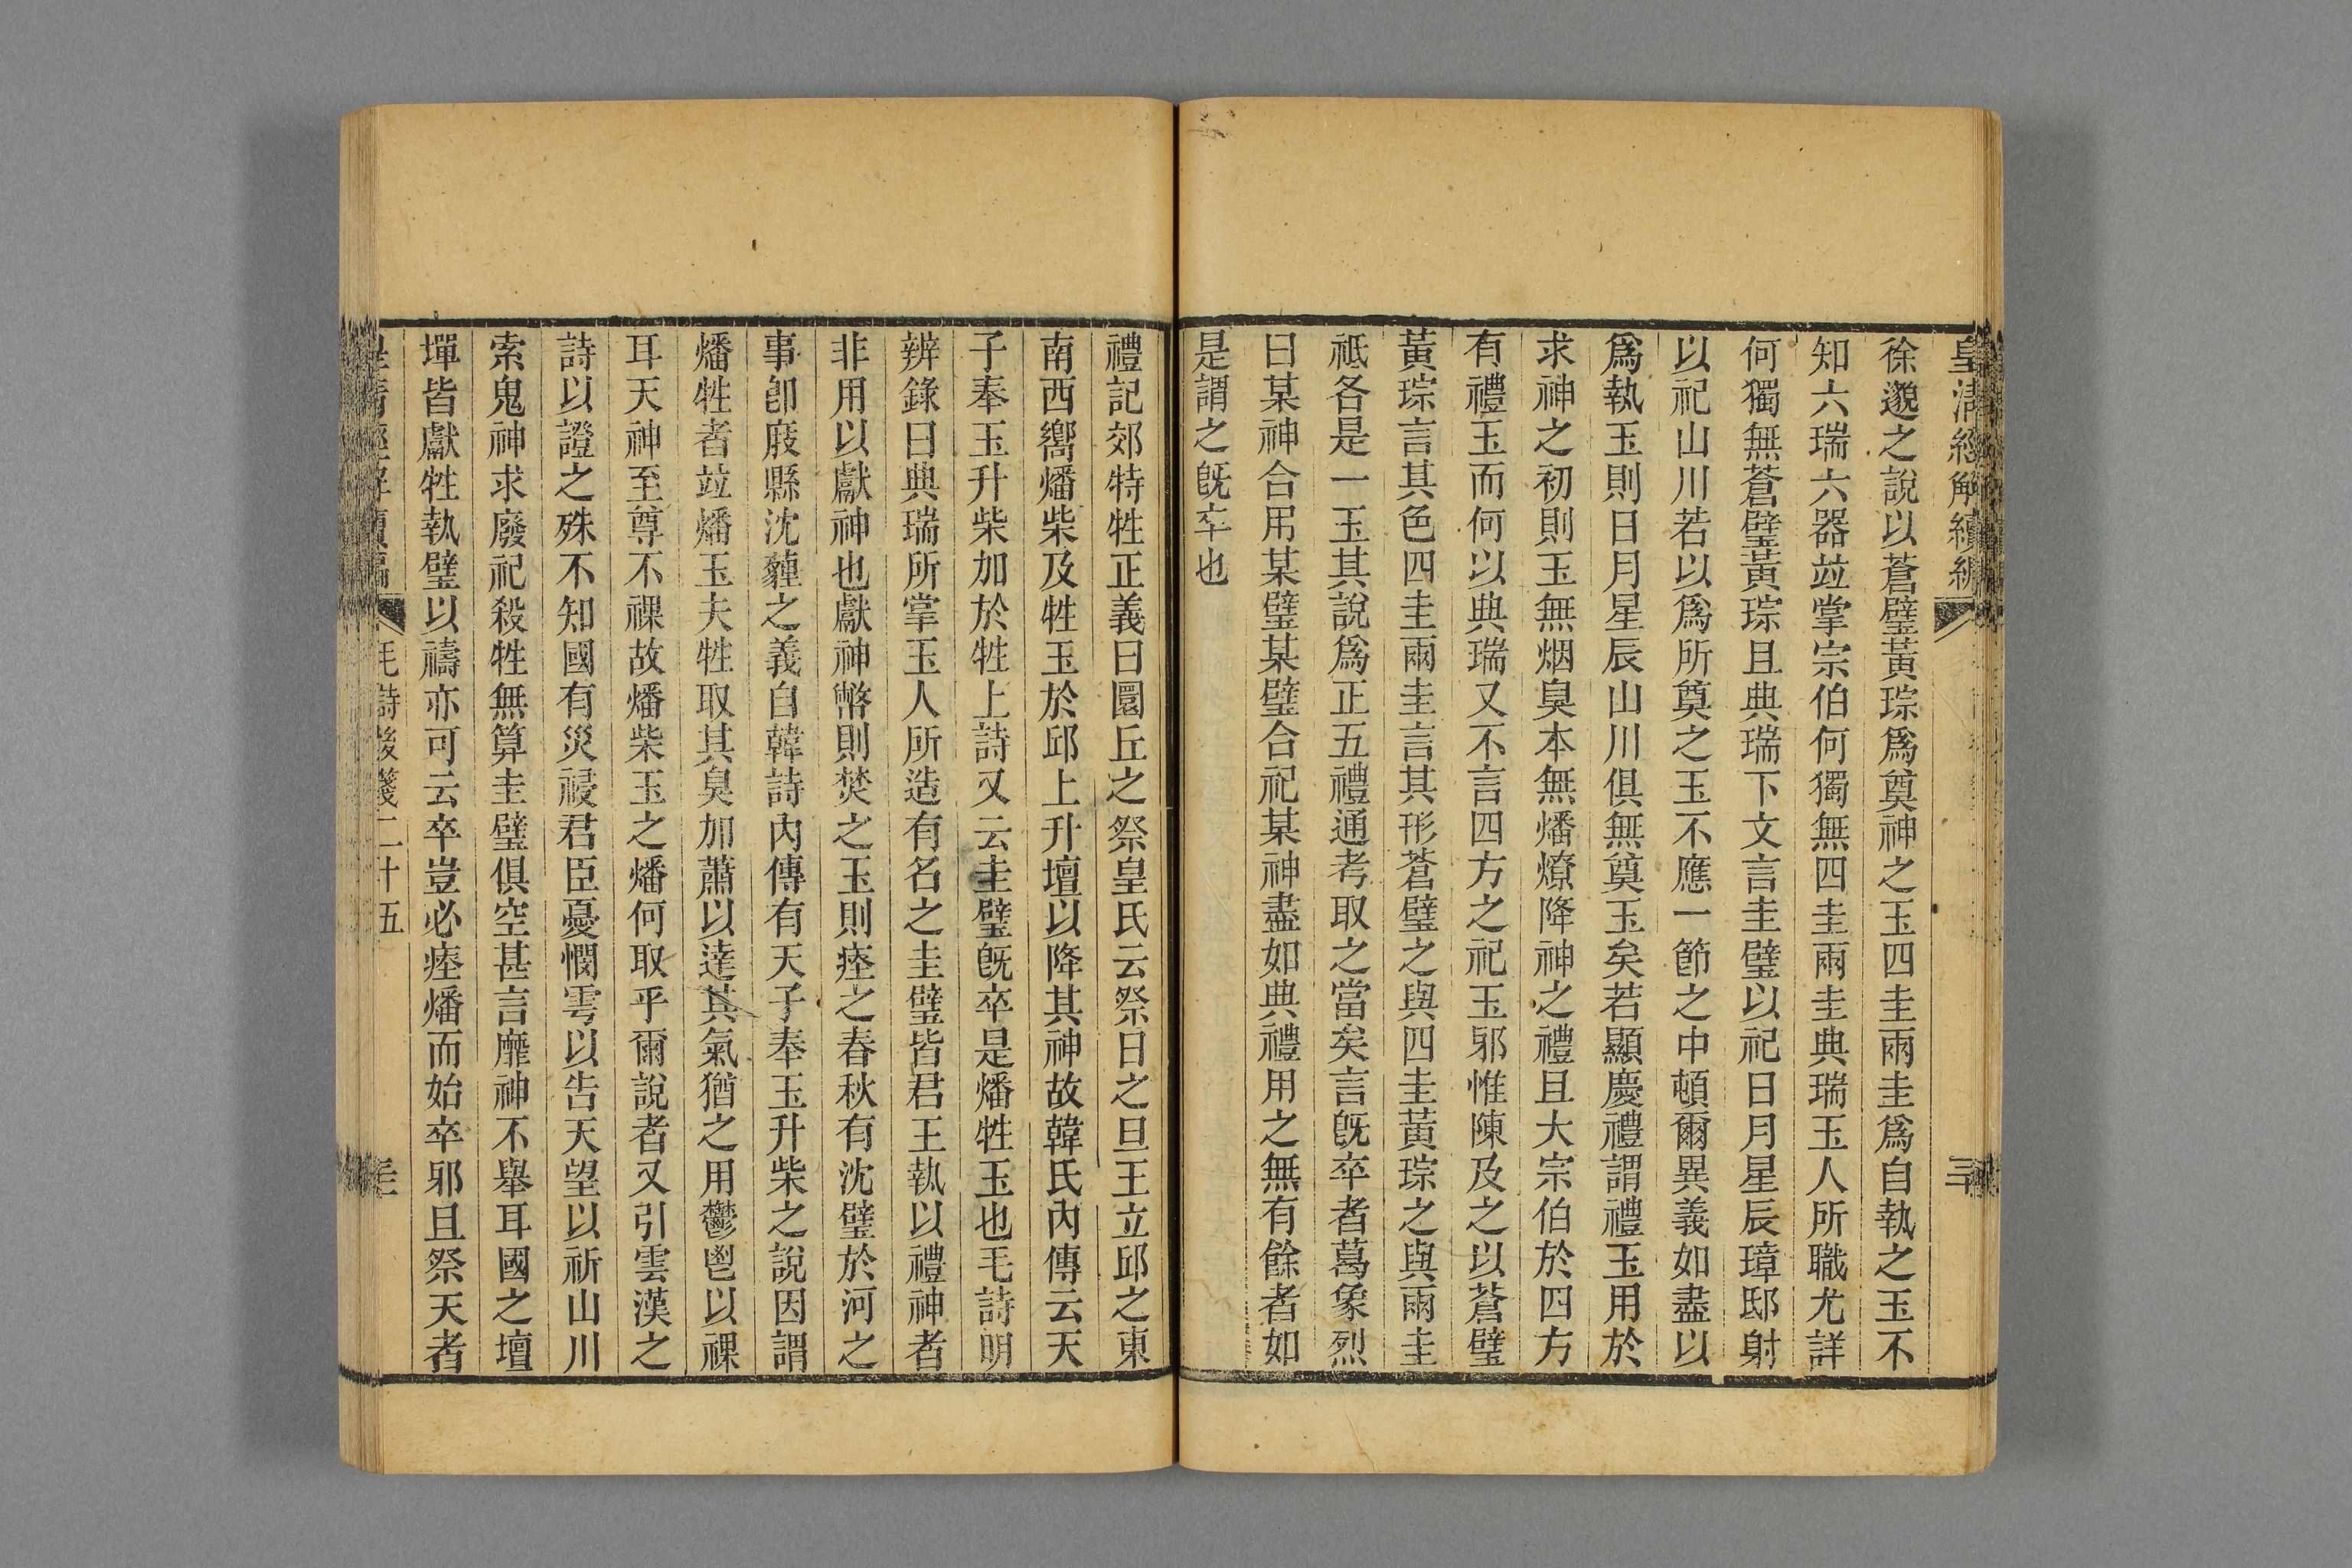 皇清經解續編
三十
徐邈之說以蒼璧黃琮爲奠神之玉四圭兩圭爲自執之玉不
知六瑞六器竝掌宗伯何獨無四圭兩圭典瑞玉人所職尤詳
何獨無蒼璧黃琮且典瑞下文言圭璧以祀日月星辰璋邸射
以祀山川若以爲所奠之玉不應一節之中頓爾異義如盡以
爲執玉則日月星辰山川俱無奠玉矣若顯慶禮謂禮玉用於
求神之初則玉無烟臭本無燔燎降神之禮且大宗伯於四方
有禮玉而何以典瑞又不言四方之祀玉邪惟陳及之以蒼璧
黃琮言其色四圭兩圭言其形蒼璧之與四圭黃琮之與兩圭
祇各是一玉其說爲正五禮通考取之當矣言旣卒者葛象烈
曰某神合用某璧某璧合祀某神盡如典禮用之無有餘者如
是謂之旣卒也
禮記郊特牲正義曰圜丘之祭皇氏云祭日之旦王立邱之東
南西嚮燔柴及牲玉於邱上升壇以降其神故韓氏內傳云天
子奉玉升柴加於牲上詩又云圭璧旣卒是燔牲玉也毛詩明
辨錄曰典瑞所掌玉人所造有名之圭璧皆君王執以禮神者
非用以獻神也獻神幣則焚之玉則瘞之春秋有沈璧於河之
事卽庪縣沈薶之義自韓詩內傳有天子奉玉升柴之說因謂
燔牲者竝燔玉夫牲取其臭加蕭以達其氣猶之用鬱鬯以祼
耳天神至尊不祼故燔柴玉之燔何取乎爾說者又引雲漢之
詩以證之殊不知國有災祲君臣憂憫雩以告天望以祈山川
索鬼神求廢祀殺牲無算圭璧俱空甚言靡神不舉耳國之壇
墠皆獻牲執璧以禱亦可云卒豈必瘞燔而始卒邪且祭天者
皇清經解續編
毛詩後箋二十五